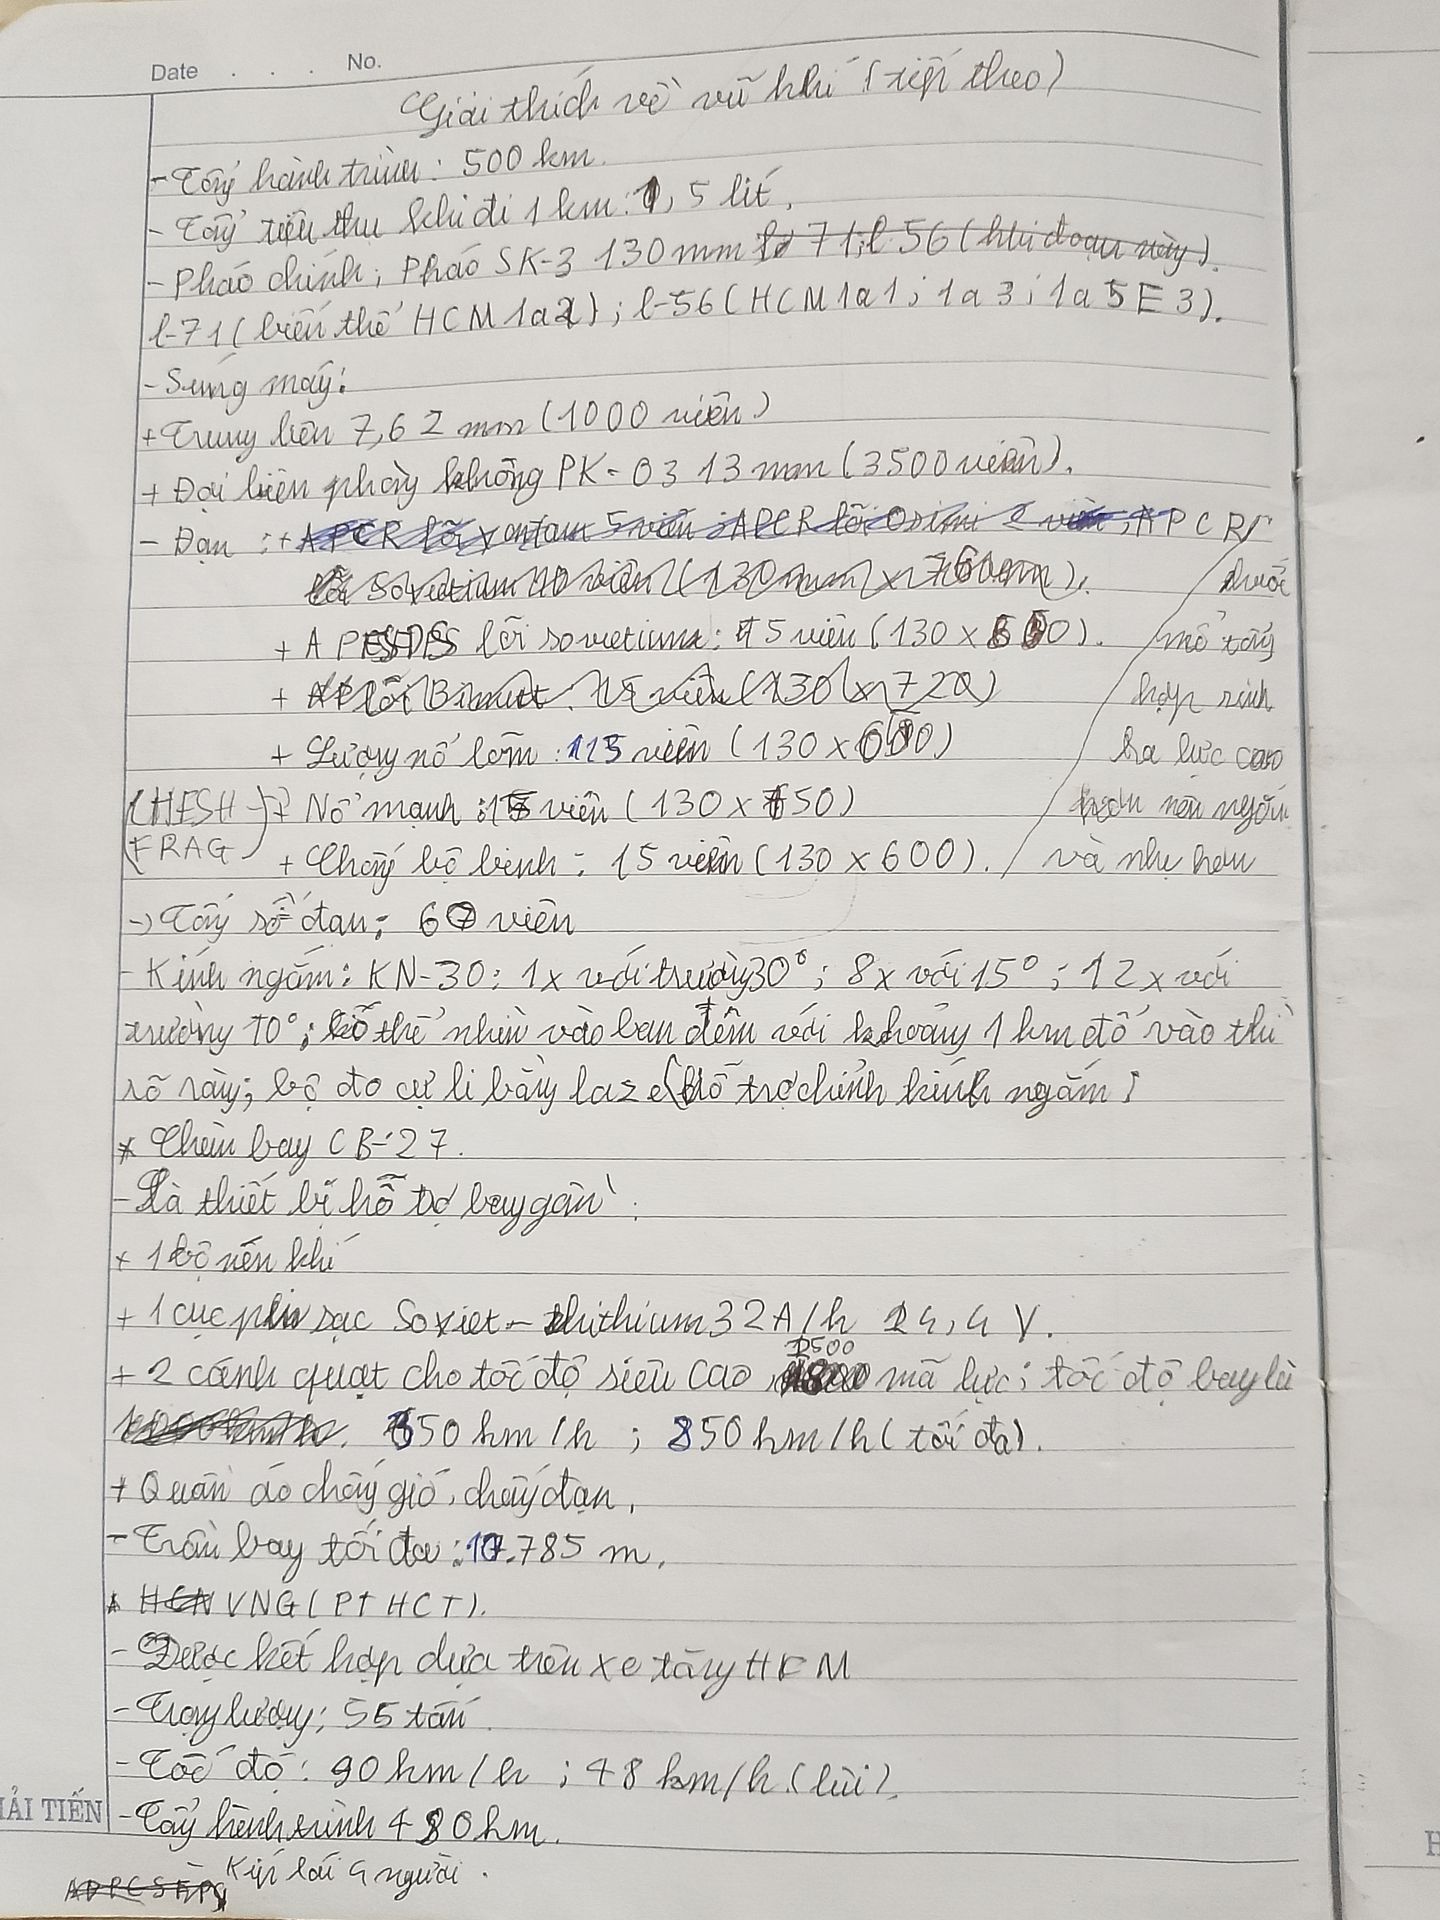 Date . . . No.
Giải thích về vũ khí (tiếp theo)
- Tổng hành trình: 500 km.
- Tổng tiêu thụ khi đi 1 km: 1,5 lít.
- Pháo chính: Pháo SK-3 130mm l-71; l-56 (khi đoạn này).
l-71 (biến thể HCM1a2); l-56 (HCM1a1; 1a3; 1a5E3).
- Súng máy:
+ Trung liên 7,62 mm (1000 viên)
+ Đại liên phòng không PK-03 13mm (3500 viên).
- Đạn: + APCR lõi 5 viên; APCR lõi 2 viên; APCR
lõi Sovietium 10 viên (130mm x 760mm). thuốc
+ lõi sovietium: 15 viên (130 x ). nổ tổng
+ AP lõi Bimut: 15 viên (130 x 720) hợp sinh
+ Lượng nổ lõm: 115 viên (130 x ) ra lực cao
(HESH + Nổ mạnh: 15 viên (130 x 650) hơn nên ngắn
FRAG) + Chống bộ binh: 15 viên (130 x 600). và nhẹ hơn
-> Tổng số đạn: 60 viên
- Kính ngắm: KN-30: 1x với trường 30°; 8x với 15°; 12x với
trường 10°; có thể nhìn vào ban đêm với khoảng 1 km đổ vào thì
rõ ràng; bộ đo cự li bằng laze (hỗ trợ chỉnh kính ngắm)
* Chùm bay CB-27.
- Là thiết bị hỗ trợ bay gồm:
+ 1 bộ nén khí
+ 1 cục pin sạc Soviet - lhithium 32A/h 24,4 V.
+ 2 cánh quạt cho tốc độ siêu cao, 1500 mã lực; tốc độ bay là
350 km/h; 850 km/h (tối đa).
+ Quần áo chống gió, chống đạn.
- Trần bay tối đa: 10.785 m.
* HCN VNG (PTHCT).
- Được kết hợp dựa trên xe tăng HCM
- Trọng lượng: 55 tấn.
- Tốc độ: 90 km/h; 48 km/h (lùi).
- Tổng hành trình 480 km.
ẢI TIẾN
Kíp lái 4 người.
H